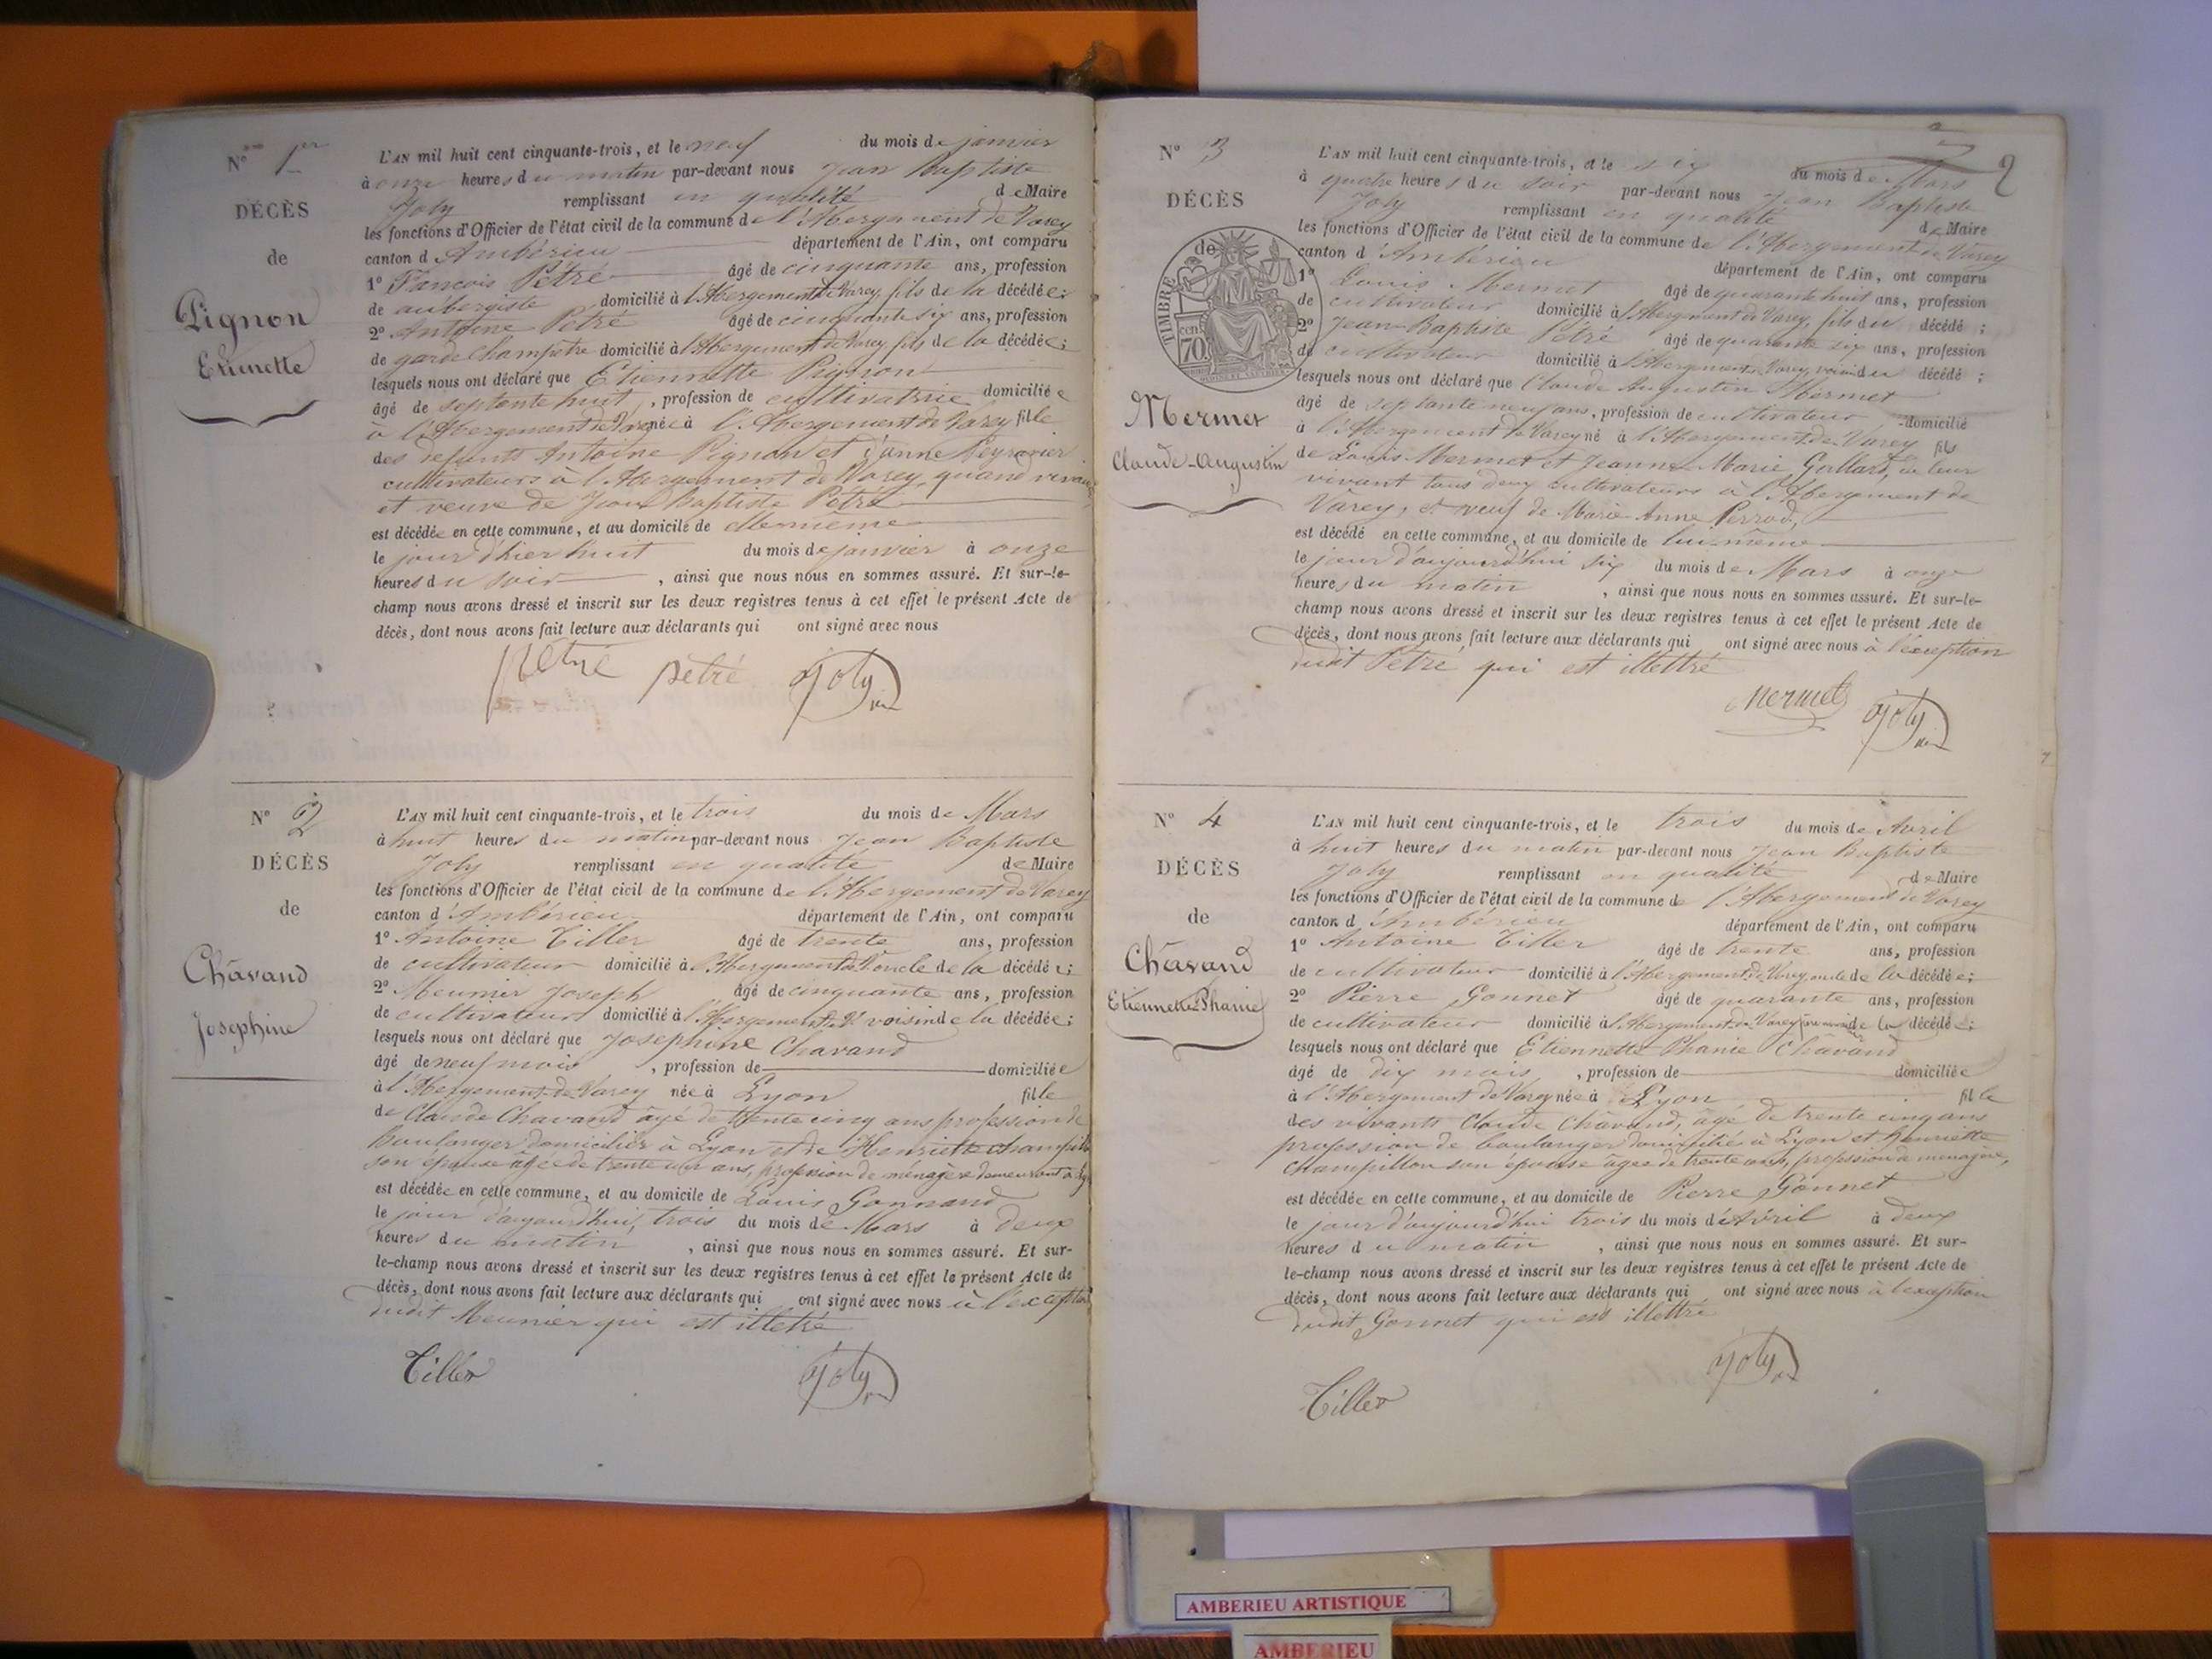 N° 1er
DÉCÈS
de
Pignon
Etienette
L'AN mil huit cent cinquante-trois, et le neuf du mois de janvier
à onze heures du matin par-devant nous Jean Baptiste
Joly remplissant en qualité de Maire
les fonctions d'Officier de l'état civil de la commune de l'Abergement de Varey
canton d'Ambérieu département de l'Ain, ont comparu
1° Francois Pétré âgé de cinquante ans, profession
de aubergiste domicilié à l'Abergement de Varey, fils de la décédée;
2° Antoine Petré âgé de cinquante six ans, profession
de garde Champêtre domicilié à l'Abergement de Varey, fils de la décédée;
lesquels nous ont déclaré que Etiennette Pignon
âgé de septante huit, profession de cultivatrice domiciliée
à l'Abergement de Varey née à l'Abergement de Varey fille
des défunts Antoine Pignon et d'anne
cultivateurs à l'Abergement de Varey, quand vivaient
et veuve de Jean Baptiste Petré
est décédée en cette commune, et au domicile de elle même
le jour d'hier huit du mois de janvier à onze
heures du soir, ainsi que nous nous en sommes assuré. Et sur-le-
champ nous avons dressé et inscrit sur les deux registres tenus à cet effet le présent Acte de
décès, dont nous avons fait lecture aux déclarants qui ont signé avec nous
Pétré pétré Joly
N° 2
DÉCÈS
de
Chavand
Josephine
L'AN mil huit cent cinquante-trois, et le trois du mois de Mars
à huit heures du matin par-devant nous Jean Baptiste
Joly remplissant en qualité de Maire
les fonctions d'Officier de l'état civil de la commune de l'Abergement de Varey
canton d'Ambérieu département de l'Ain, ont comparu
1° Antoine Tiller âgé de trente ans, profession
de cultivateur domicilié à l'Abergement de V. oncle de la décédée;
2° Meunier Joseph âgé de cinquante ans, profession
de cultivateur domicilié à l'Abergement de V. voisin de la décédée;
lesquels nous ont déclaré que Josephine Chavand
âgé de neuf mois, profession de domiciliée
à l'Abergement de Varey née à Lyon fille
de Claude Chavand âgé de trente cinq ans profession de
Boulanger domiciliés à Lyon et de Henriette champillon
son épouse âgée de trente un ans, profession de ménagère demeurant à Lyon
est décédée en cette commune, et au domicile de Louis Gonnand
le jour d'aujourd'hui, trois du mois de Mars à deux
heures du matin, ainsi que nous nous en sommes assuré. Et sur-
le-champ nous avons dressé et inscrit sur les deux registres tenus à cet effet le présent Acte de
décès, dont nous avons fait lecture aux déclarants qui ont signé avec nous à l'exception
dudit Meunier qui est illetré
Tiller Joly
2
N° 3
DÉCÈS
de
TIMBRE
cent
70
Mermet
Claude-Augustin
L'AN mil huit cent cinquante-trois, et le six du mois de Mars
à quatre heures du soir par-devant nous Jean Baptiste
Joly remplissant en qualité de Maire
les fonctions d'Officier de l'état civil de la commune de l'Abergement de Varey
canton d'Ambérieu département de l'Ain, ont comparu
1° Louis Mermet âgé de quarante huit ans, profession
de cultivateur domicilié à l'Abergement de Varey, fils du décédé;
2° Jean-Baptiste Pétré âgé de quarante six ans, profession
de cultivateur domicilié à l'Abergement de Varey, voisin du décédé;
lesquels nous ont déclaré que Claude Augustin Mermet
âgé de septante neuf ans, profession de cultivateur domicilié
à l'Abergement de Varey né à l'Abergement de Varey fils
de Louis Mermet et Jeanne Marie Gallard, de leur
vivant tous deux cultivateurs à l'Abergement de
Varey, et veuf de Marie Anne Perrod,
est décédé en cette commune, et au domicile de lui même
le jour d'aujourd'hui six du mois de Mars à onze
heures du matin, ainsi que nous nous en sommes assuré. Et sur-le-
champ nous avons dressé et inscrit sur les deux registres tenus à cet effet le présent Acte de
décès, dont nous avons fait lecture aux déclarants qui ont signé avec nous à l'exception
dudit Pétré qui est illettré
Mermet Joly
N° 4
DÉCÈS
de
Chavand
Etiennette Phanie
L'AN mil huit cent cinquante-trois, et le trois du mois de Avril
à huit heures du matin par-devant nous Jean Baptiste
Joly remplissant en qualité de Maire
les fonctions d'Officier de l'état civil de la commune de l'Abergement de Varey
canton d'Ambérieu département de l'Ain, ont comparu
1° Antoine Tiller âgé de trente ans, profession
de cultivateur domicilié à l'Abergement de Varey oncle de la décédée;
2° Pierre Gonnet âgé de quarante ans, profession
de cultivateur domicilié à l'Abergement de Varey de la décédée;
lesquels nous ont déclaré que Etiennette Phanie Chavand
âgé de dix mois, profession de domiciliée
à l'Abergement de Varey née à Lyon fille
des vivants Claude Chavand, âgé de trente cinq ans
profession de boulanger domicilié à Lyon et henriette
champillon son épouse âgée de trente ans, profession de menagère,
est décédée en cette commune, et au domicile de Pierre Gonnet
le jour d'aujourd'hui trois du mois d'Avril à deux
heures du matin, ainsi que nous nous en sommes assuré. Et sur-
le-champ nous avons dressé et inscrit sur les deux registres tenus à cet effet le présent Acte de
décès, dont nous avons fait lecture aux déclarants qui ont signé avec nous à l'exception
dudit Gonnet qui est illettré
Tiller Joly
AMBERIEU ARTISTIQUE
AMBERIEU